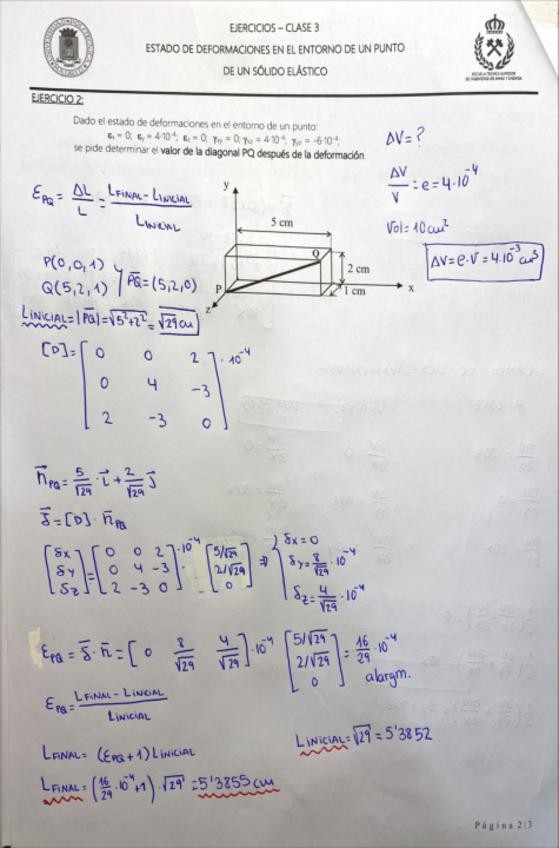 EJERCICIOS – CLASE 3
ESTADO DE DEFORMACIONES EN EL ENTORNO DE UN PUNTO
DE UN SÓLIDO ELÁSTICO
ESCUELA TÉCNICA SUPERIOR
DE INGENIEROS DE MINAS Y ENERGÍA
EJERCICIO 2:
Dado el estado de deformaciones en el entorno de un punto:
εx = 0; εy = 4·10⁻⁴; εz = 0; γxy = 0; γxz = 4·10⁻⁴; γyz = -6·10⁻⁴;
se pide determinar el valor de la diagonal PQ después de la deformación
ΔV = ?
ΔV/V = e = 4·10⁻⁴
Vol = 10 cm²
ΔV = e·V = 4·10⁻³ cm³
ε_PQ = ΔL/L = (L FINAL - L INICIAL)/L INICIAL
y
5 cm
Q
2 cm
P
x
1 cm
z
P(0,0,1)
Q(5,2,1) } P̄Q̄ = (5,2,0)
L INICIAL = |P̄Q̄| = √5²+2² = √29 cm
[D] = [ 0 0 2
0 4 -3
2 -3 0 ] · 10⁻⁴
n⃗_PQ = 5/√29 · i⃗ + 2/√29 j⃗
δ⃗ = [D] · n⃗_PQ
[δx [0 0 2 [5/√29 { δx = 0
δy = 0 4 -3 ·10⁻⁴ · 2/√29 ⇒ δy = 8/√29 · 10⁻⁴
δz] 2 -3 0] 0] δz = 4/√29 · 10⁻⁴
ε_PQ = δ̄ · n̄ = [0 8/√29 4/√29] · 10⁻⁴ [5/√29 2/√29 0] = 16/29 · 10⁻⁴
alargm.
ε_PQ = (L FINAL - L INICIAL)/L INICIAL
L INICIAL = √29 = 5'3852
L FINAL = (ε_PQ + 1) L INICIAL
L FINAL = (16/29 · 10⁻⁴ + 1) · √29 = 5'3855 cm
Página 2|3